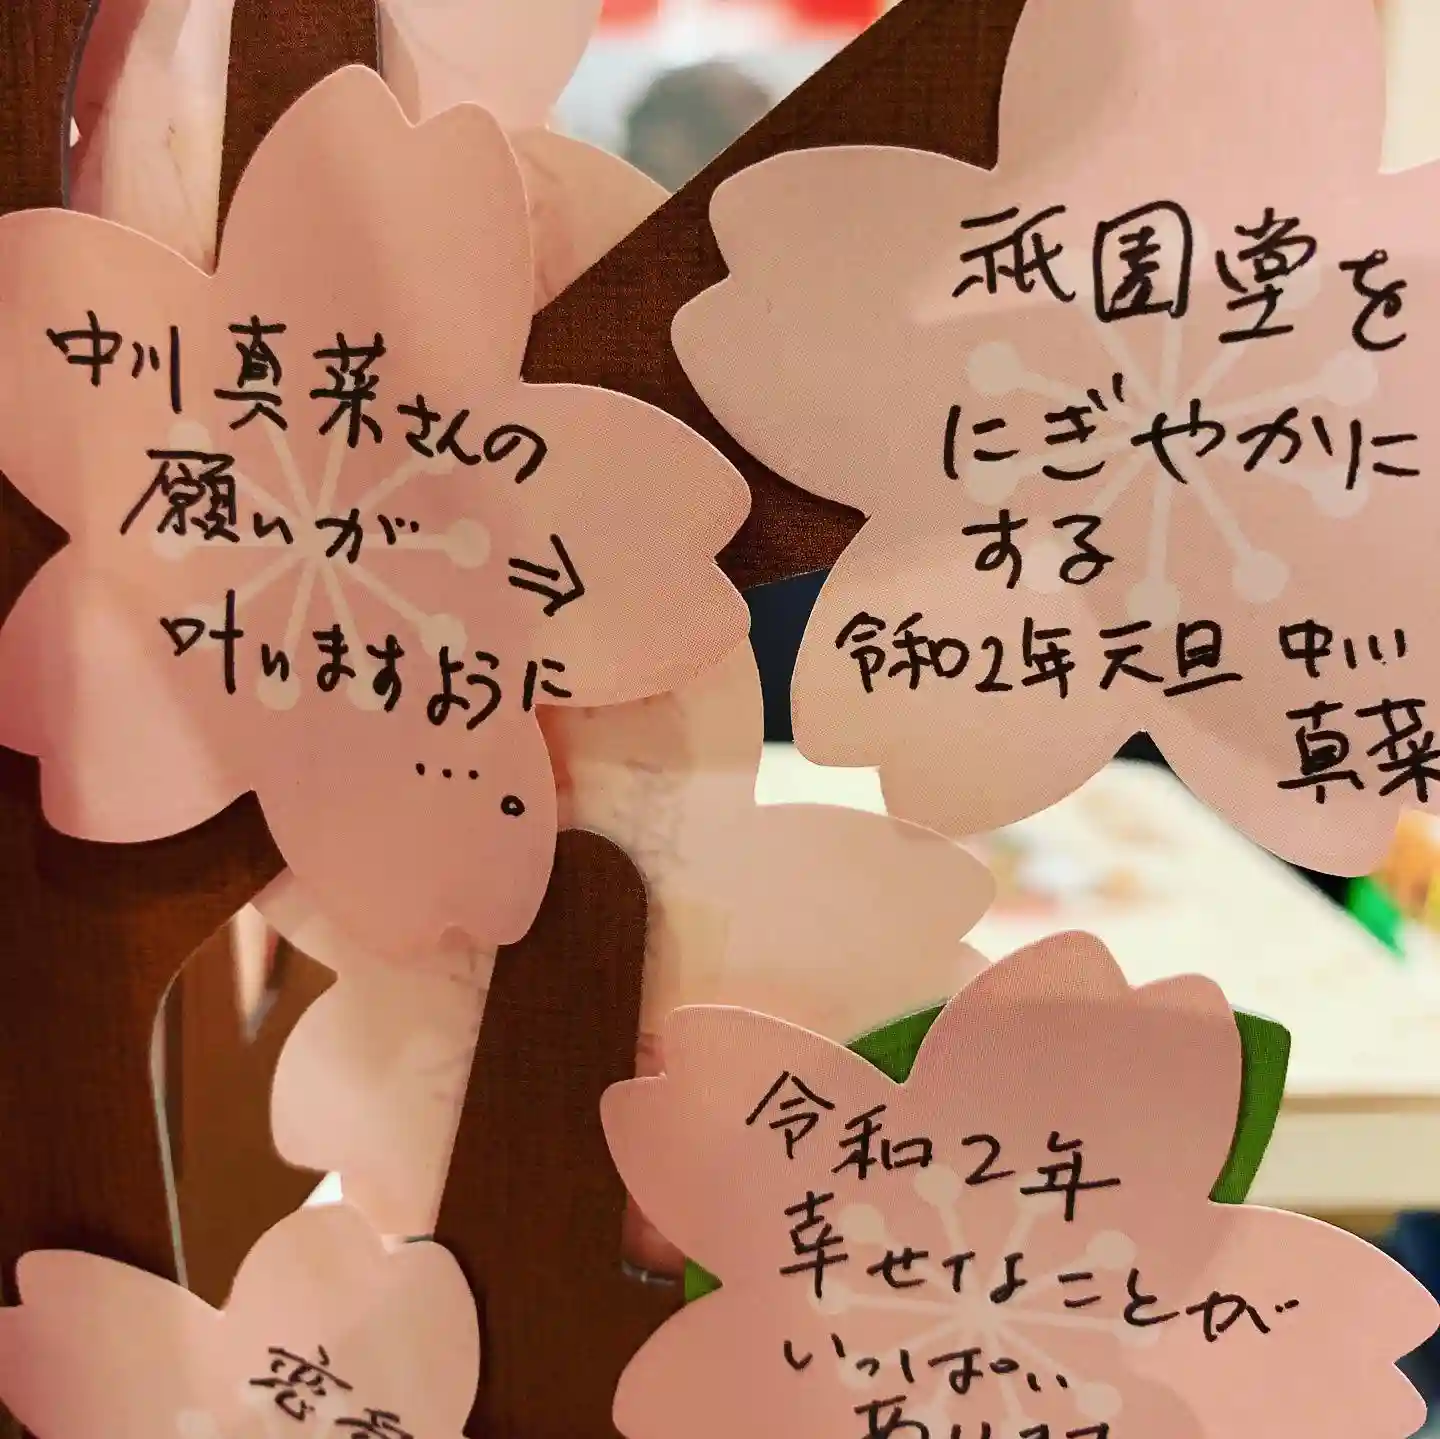 中川真菜さんの
願いが
⇒
叶いますように
…。
祇園堂を
にぎやかに
する
令和2年元旦 中川
真菜
令和2年
幸せなことが
いっぱい
あります
恋愛